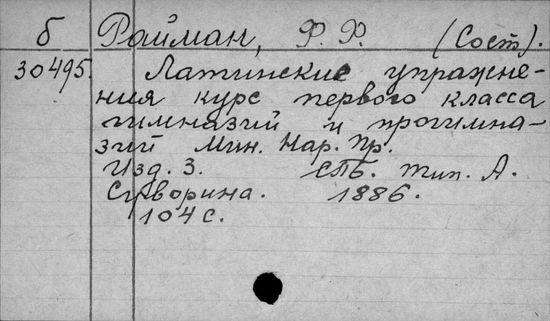 б Райман, Ф. Ф. (Сост).
30495. Латинские упражне-
ния курс первого класса
гимназий и прогимна-
зий Мин. Нар. Пр.
Изд. 3. СПб. тип. А.
Суворина. 1886.
104 с.